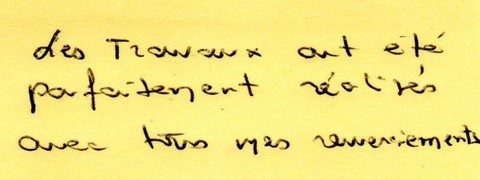 des Travaux ont été
parfaitement réalisés
avec tous mes remerciements